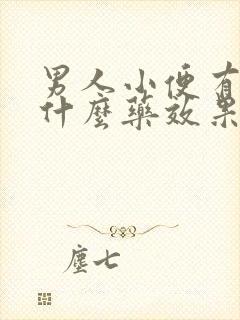 男人小便有
什麼藥效果
塵七